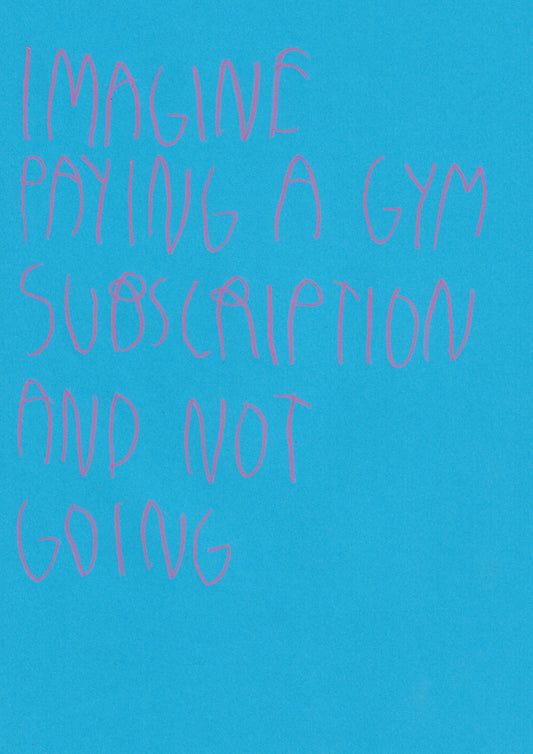 IMAGINE
PAYING A GYM
SUBSCRIPTION
AND NOT
GOING